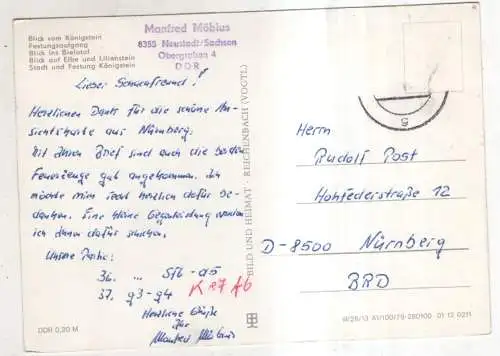 Blick vom Königstein
Festungsaufgang
Blick ins Bielatal
Blick auf Elbe und Lilienstein
Stadt und Festung Königstein
Manfred Möbius
8355 Neustadt/Sachsen
Obergraben 4
DDR
Lieber Schachfreund!
Herzlichen Dank für die schöne An-
sichtskarte aus Nürnberg.
Mit Ihrem Brief sind auch die beiden
Feuerzeuge gut angekommen. Ich
möchte mich recht herzlich dafür be-
danken. Eine kleine werde
ich Ihnen dafür schicken.
Unsere Partie:
36. ... Sf6-d5
37. g3-g4 K27 Ab
Herzliche Grüße
Ihr
Manfred Möbius
DDR 0,20 M
BILD UND HEIMAT REICHENBACH (VOGTL)
Herrn
Rudolf Post
Hohfederstraße 12
D-8500 Nürnberg
BRD
W/28/13 A1/100/79 280100 01 12 0211